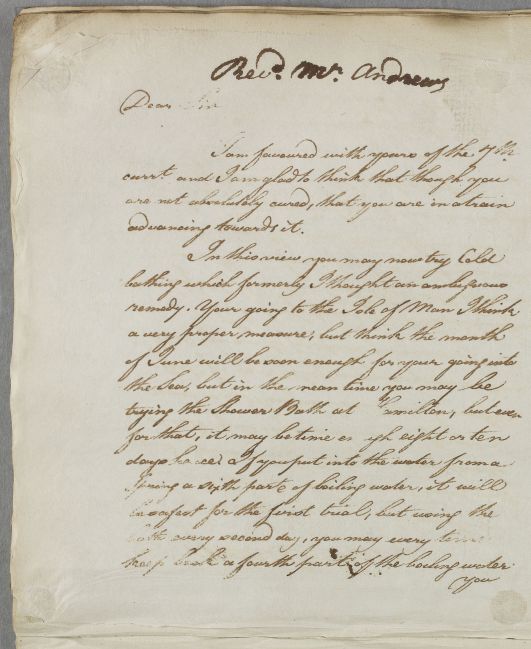 Revd. Mr. Andrews
Dear Sir
I am favoured with yours of the 7th
currt. and I am glad to think that though you
are not absolutely cured, that you are in a train
advancing towards it.
In this view you may now try Cold
bathing which formerly I thought an ambiguous
remedy. Your going to the Isle of Man I think
a very proper measure; but think the month
of June will be soon enough for your going into
the Sea, but in the mean time you may be
trying the Shower Bath at Hamilton, but even
for that, it may be time eight or ten
days If you put into the water from a
Spring a sixth part of boiling water, it will
be safest for the first trial, but using the
bath every second day, you may every time
keep back a fourth part of the boiling water
you